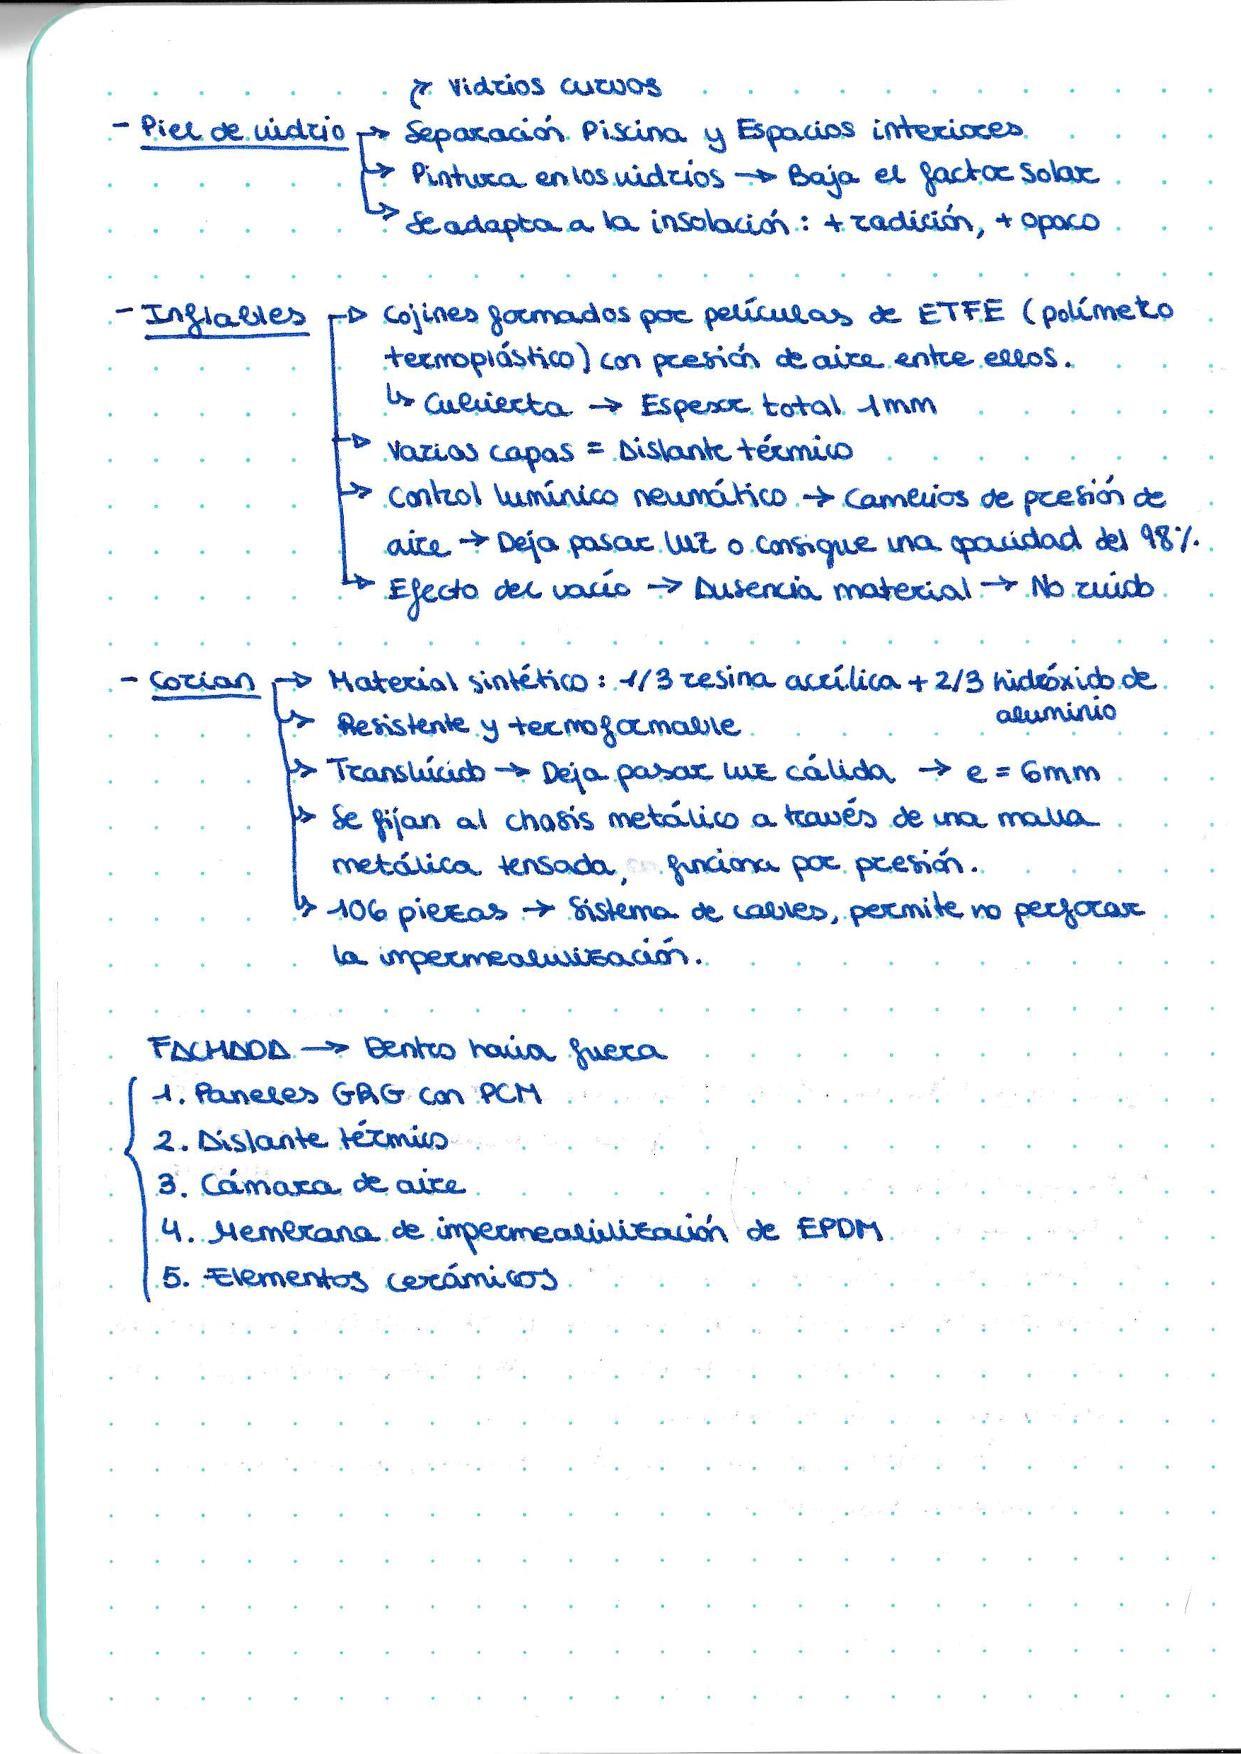 ↱ Vidrios curvos
- Piel de vidrio → Separación Piscina y Espacios interiores
↳ Pintura en los vidrios → Baja el factor Solar
↳ Se adapta a la insolación : + radición, + opaco
- Inflables → Cojines formados por películas de ETFE (polímero
termoplástico) con presión de aire entre ellos.
↳ Cubierta → Espesor total 1mm
→ Varias capas = Aislante térmico
→ Control lumínico neumático → Cambios de presión de
aire → Deja pasar luz o consigue una opacidad del 98%.
→ Efecto del vacío → Ausencia material → No ruido
- Corian → Material sintético : 1/3 resina acrílica + 2/3 hidróxido de
aluminio
↳ Resistente y termoformable
↳ Translúcido → Deja pasar luz cálida → e = 6mm
↳ Se fijan al chasis metálico a través de una malla
metálica tensada, funciona por presión.
↳ 106 piezas → Sistema de cables, permite no perforar
la impermeabilización.
FACHADA → Dentro hacia fuera
1. Paneles GRG con PCM
2. Aislante térmico
3. Cámara de aire
4. Membrana de impermeabilización de EPDM
5. Elementos cerámicos